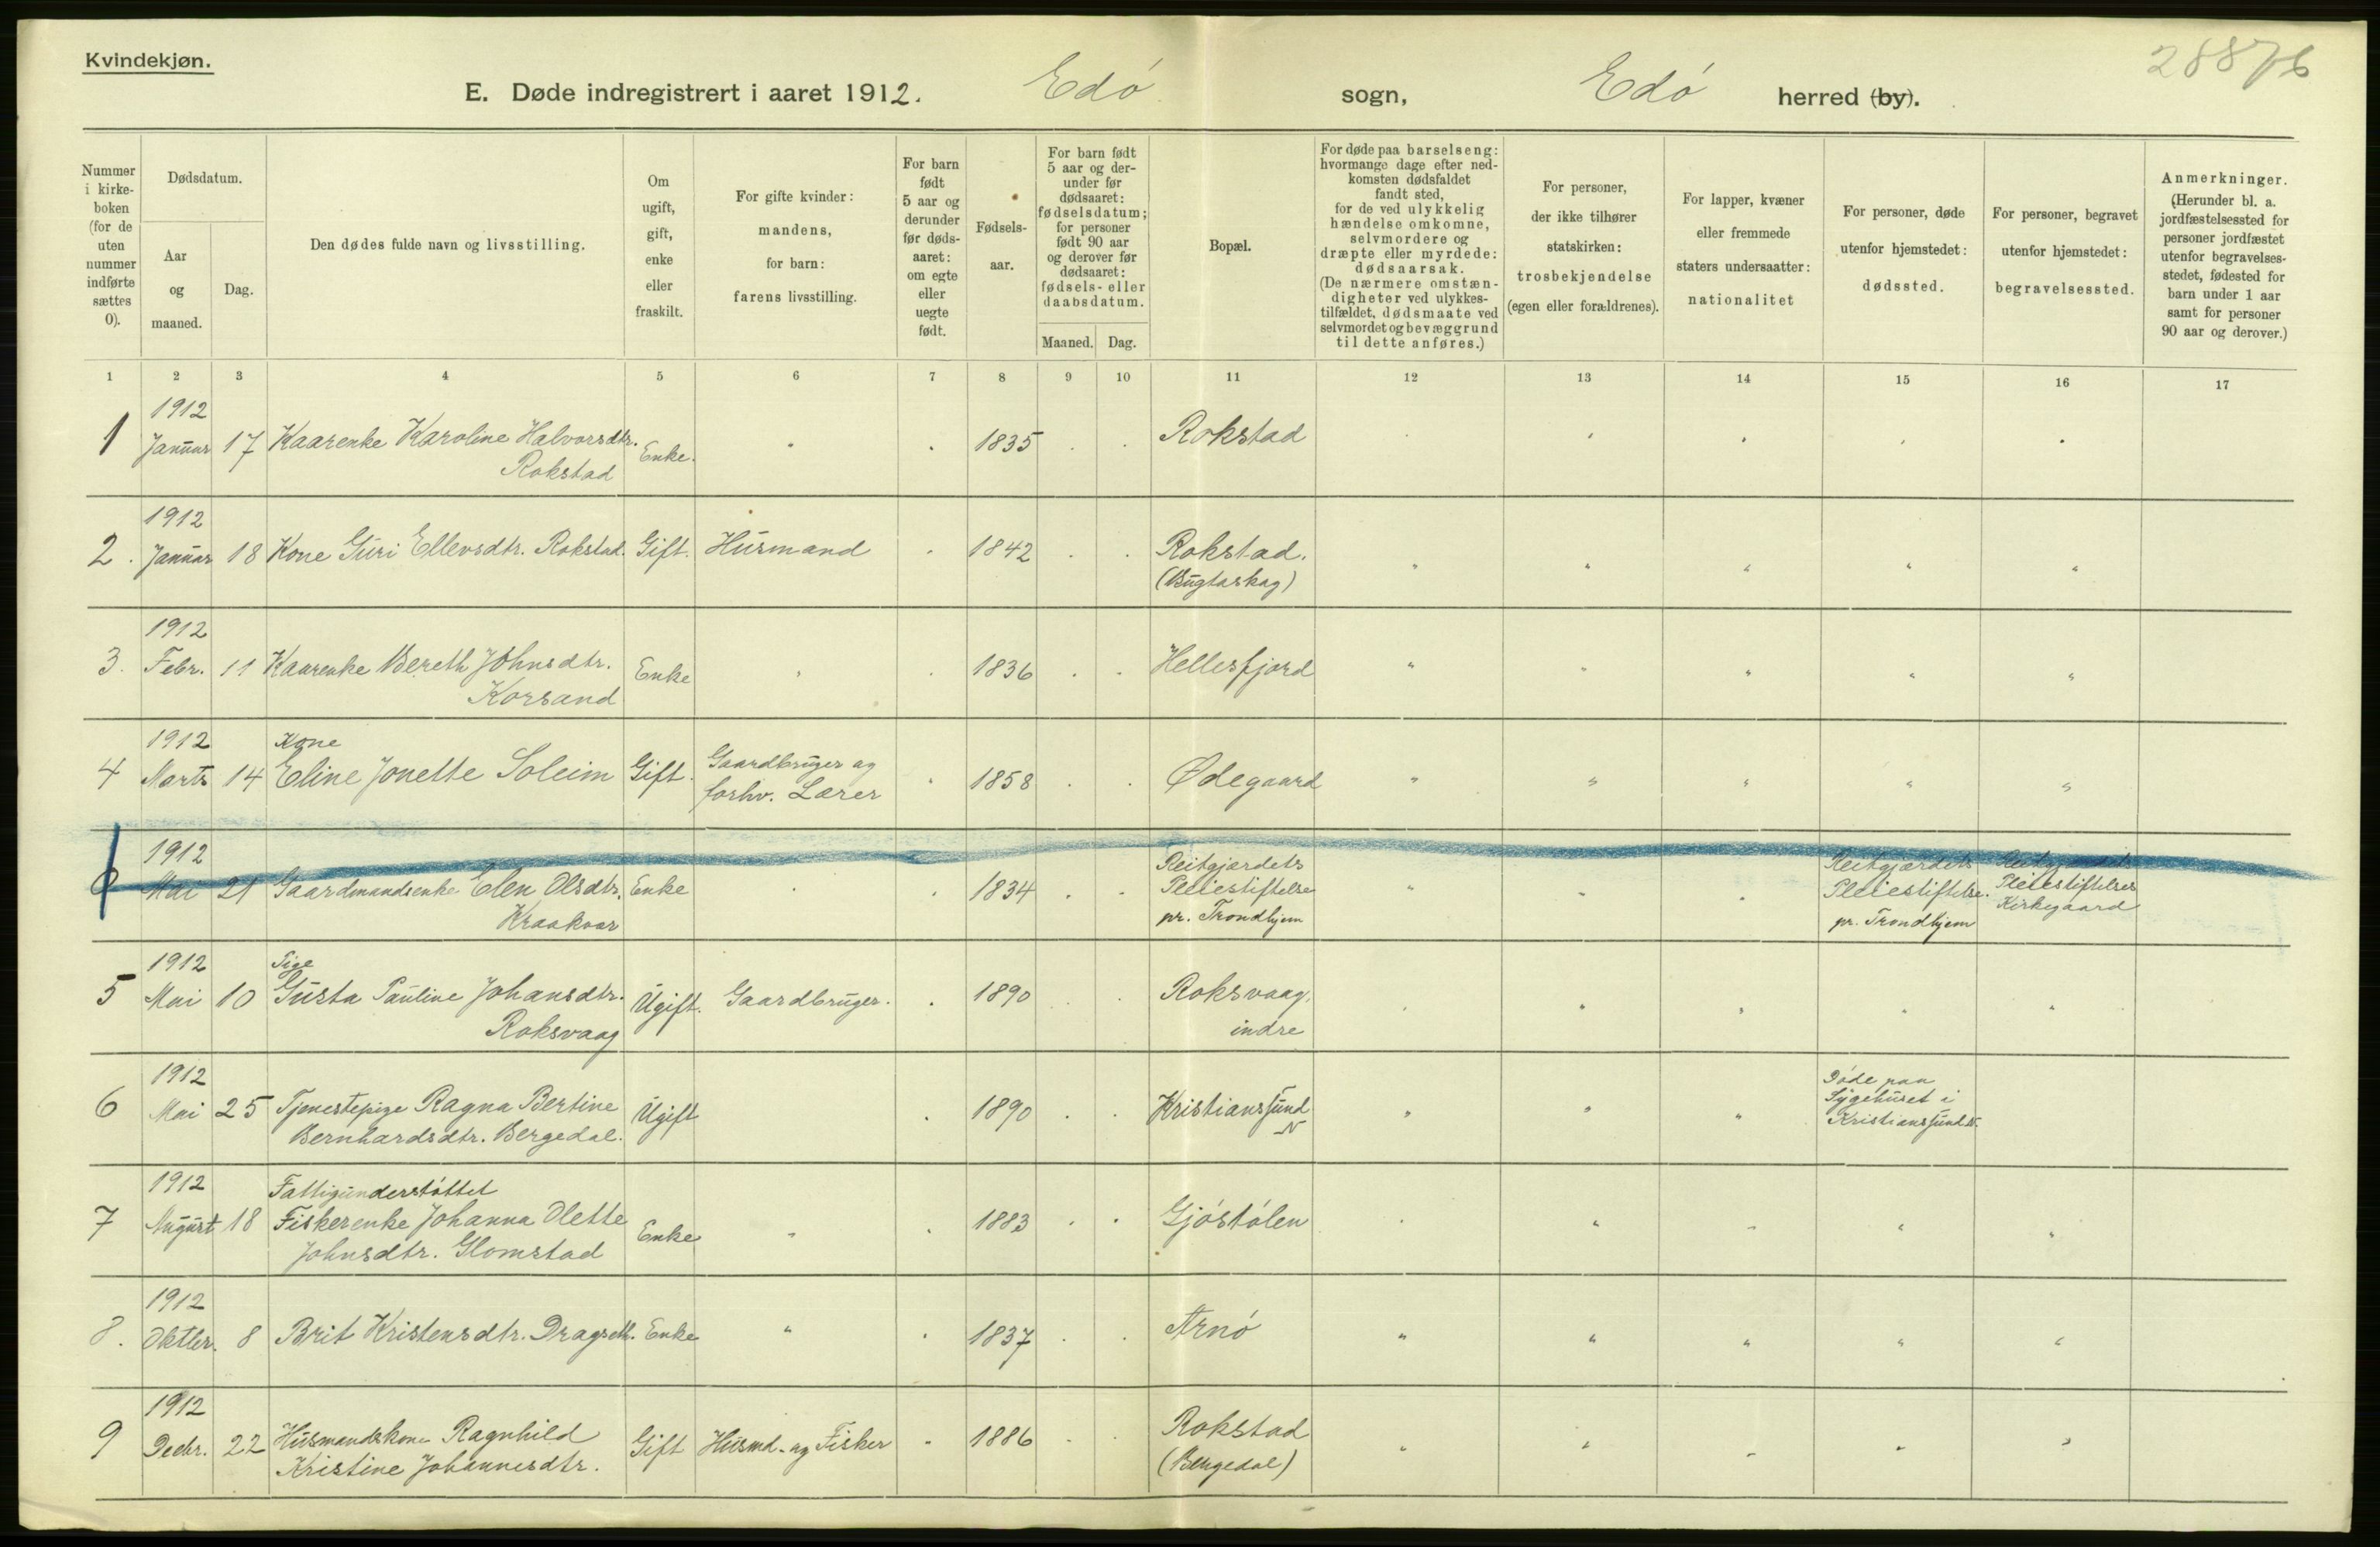 Kvindekjøn.
28876
E. Døde indregistrert i aaret 1912. Edó sogn, Edó herred (by).
Nummer i kirkeboken (for de uten nummer indførte sættes 0).
Dødsdatum.
Aar og maaned.
Dag.
Den dødes fulde navn og livsstilling.
Om ugift, gift, enke eller fraskilt.
For gifte kvinder: mandens, for barn: farens livsstilling.
For barn født 5 aar og derunder før dødsaaret: om egte eller uegte født.
Fødselsaar.
For barn født 5 aar og derunder før dødsaaret: fødselsdatum; for personer født 90 aar og derover før dødsaaret: fødsels- eller daabsdatum.
Maaned. Dag.
Bopæl.
For døde paa barselseng: hvormange dage efter nedkomsten dødsfaldet fandt sted, for de ved ulykkelig hændelse omkomne, selvmordere og dræpte eller myrdede: dødsaarsak. (De nærmere omstændigheter ved ulykkestilfældet, dødsmaate ved selvmordet og bevæggrund til dette anføres.)
For personer, der ikke tilhører statskirken: trosbekjendelse (egen eller forældrenes).
For lapper, kvæner eller fremmede staters undersaatter: nationalitet
For personer, døde utenfor hjemstedet: dødssted.
For personer, begravet utenfor hjemstedet: begravelsessted.
Anmerkninger. (Herunder bl. a. jordfæstelsessted for personer jordfæstet utenfor begravelsesstedet, fødested for barn under 1 aar samt for personer 90 aar og derover.)
1 2 3 4 5 6 7 8 9 10 11 12 13 14 15 16 17
1912
1 Januar 17 Kaarenke Karoline Halvorsdtr. Enke. 1835 Rokstad
Rokstad
1912
2. Januar 18 Kone Guri Ellevsdtr. Rokstad. Gift. Husmand 1842 Rokstad.
(Bugtaskag)
1912
3. Febr. 11 Kaarenke Bereth Johnsdtr. Enke 1836 Hellesfjord
Korsand
1912 Kone
4 Marts 14 Eline Jonette Soleim Gift. Gaardbruger og 1858 Ødegaard
forhv. Lærer
1912 Reitgjærdets Reitgjærdets Reitgjærdets
Mai 21 Gaardmandsenke Elen Olsdtr. Enke 1834 Pleiestiftelse Pleiestiftelse. Pleiestiftelses
Kraakvaer pr. Trondhjem pr. Trondhjem Kirkegaard
1912 Pige
5 Mai 10 Gusta Pauline Johansdtr. Ugift. Gaardbruger. 1890 Roksvaag,
Roksvaag indre
1912 Døde paa
6 Mai 25 Tjenestepige Ragna Bertine Ugift 1890 Kristianssund Sygehuset i
Bernhardsdtr. Bergedal. N Kristianssund N.
1912 Fattigunderstóttet
7 August 18 Fiskerenke Johanna Olette Enke 1883 Gjóstólen
Johnsdtr. Glomstad
1912
8. Oktbr. 8 Brit Kristensdtr. Dragseth. Enke 1837 Arnó
1912
9 Decbr. 22 Husmandskone Ragnhild Gift Husmd. og Fisker 1886 Rokstad
Kristine Johannesdtr. (Bergedal)